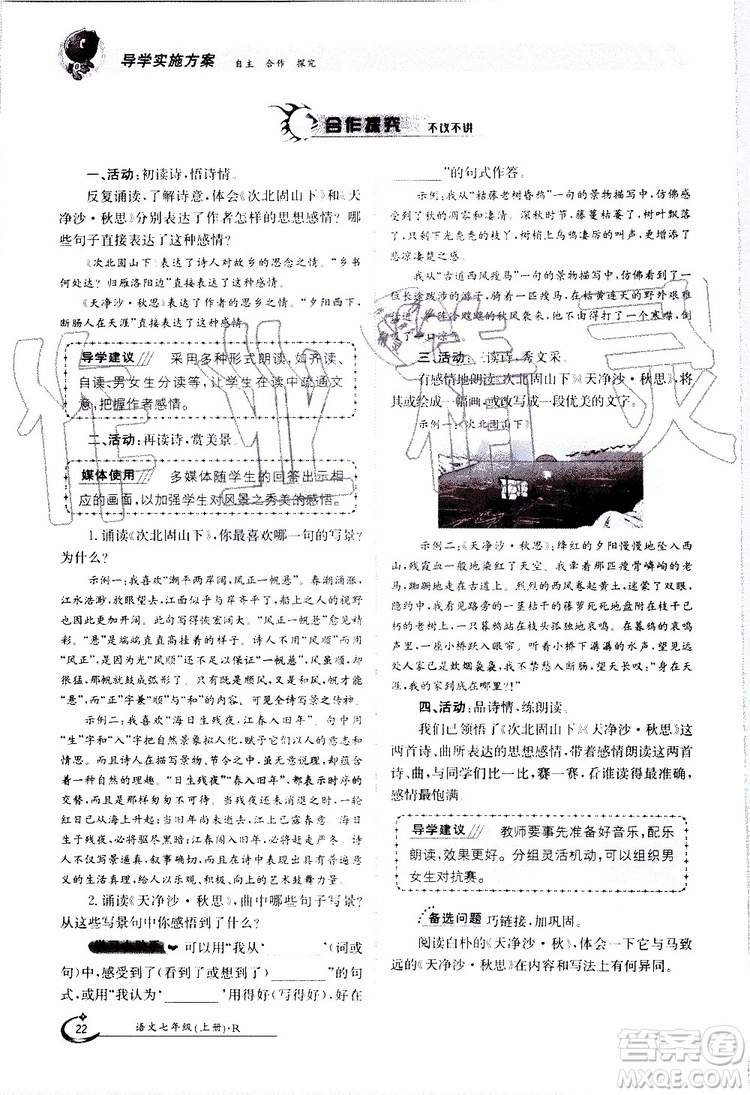 导学实施方案 自主 合作 探究
合作探究 不议不讲
一、活动：初读诗，悟诗情。
反复诵读，了解诗意，体会《次北固山下》和《天
净沙·秋思》分别表达了作者怎样的思想感情？哪
些句子直接表达了这种感情？
《次北固山下》表达了诗人对故乡的思念之情。“乡书
何处达？归雁洛阳边”直接表达了这种感情。
《天净沙·秋思》表达了作者的思乡之情。“夕阳西下，
断肠人在天涯”直接表达了这种感情。
导学建议 采用多种形式朗读，如齐读、
自读、男女生分读等，让学生在读中疏通文
意，把握作者感情。
二、活动：再读诗，赏美景。
媒体使用 多媒体随学生的回答出示相
应的画面，以加强学生对风景之秀美的感悟。
1. 诵读《次北固山下》，你最喜欢哪一句的写景？
为什么？
示例一：我喜欢“潮平两岸阔，风正一帆悬”。春潮涌涨，
江水浩渺，放眼望去，江面似乎与岸齐平了，船上人的视野
也更加开阔。因此，前一句写得恢宏阔大。后一句更加精
彩。“悬”是端端直直高挂着的样子。诗人不用“风顺”而用
“风正”，是因为光“风顺”还不足以保证“一帆悬”。风虽顺，却
很猛，那帆就鼓成弧形了。只有既是顺风，又是和风，帆才能
“悬”。“正”字兼包“顺”和“和”的内容。可见全诗写景之传神。
示例二：我喜欢“海日生残夜，江春入旧年”。句中用
“生”字和“入”字，把自然景象拟人化，赋予以人的意志和情
思。诗人在描写自然景物、节令之中，自然流露出一种自然
理趣。“日生残夜”“春入旧年”，都表示时序的
交替，而且是那样匆匆不可待。当残夜还未消退之时，一轮
红日已从海上升起；当旧年尚未逝去，江上已呈露春意。海
日生于残夜，终将驱尽黑暗；江春闯入旧年，将赶走严冬。不
仅写景逼真，叙事确切，而且表现出具有普遍意义
的生活真理，给人以乐观、积极、向上的艺术鼓舞力量。
2. 诵读《天净沙·秋思》，用了哪些句子写景？
从这些写景句中你感悟到了什么？
可以用“我从‘________’（词或
句）中，感受到了（看到了或想到了）________”的句
式，或“我认为‘________’用得好（写得好），好在
________”的句式作答。
示例：我从“枯藤老树昏鸦”一句的景物描写中，仿佛感
受到了秋的凋零和凄清。深秋时节，藤蔓枯萎了，树叶飘落
了，只剩下光秃秃的枝丫，树梢上乌鸦凄厉的叫声，更增添了
悲凉凄楚的气氛。
我从“古道西风瘦马”一句的景物描写中，仿佛看到了一
位长途跋涉的游子，骑着一匹瘦马，在枯黄连天的野外艰难
三、活动：三读诗，秀文采。
有感情地朗读《次北固山下》《天净沙·秋思》，将
其或绘成一幅画，或改写成一段优美的文字。
示例一：《次北固山下》
示例二：《天净沙·秋思》：绛红的夕阳慢慢地坠入西
山，残霞血一样浸染了天空。疲惫不堪的旅人牵着嶙峋的老
马，踟蹰地走在古道上。烈烈的西风卷起沙土，迷蒙了双眼，
隐约中，我看见路旁的一茎枯干的藤萝死死地盘附在枝干已
朽的老树上，一只暮鸦站在枝头孤独地哀鸣。在暮鸦的哀鸣
声里，一座小桥跃入眼帘。小桥下，伴着潺潺的水声，成群的
楼户人家已是炊烟袅袅，此情此景怎不使人断肠，“家在天
涯，何时是归期”！
四、活动：品诗情，练朗读。
我们已领悟了《次北固山下》《天净沙·秋思》这
两首诗、曲所表达的思想感情，带着感情朗读这两首
诗、曲，与同学们比一比，赛一赛，看谁读得最准确，
感情最饱满。
导学建议 教师要事先准备好音乐，配乐
朗读，效果更好。分组灵活机动，可以组织男
女生对抗赛。
备选问题 巧链接，加巩固。
阅读白朴的《天净沙·秋》，体会一下它与马致
远的《天净沙·秋思》在内容和写法上有何异同。
22 语文七年级（上册）·R
作业精灵
答案圈
MXQE.COM